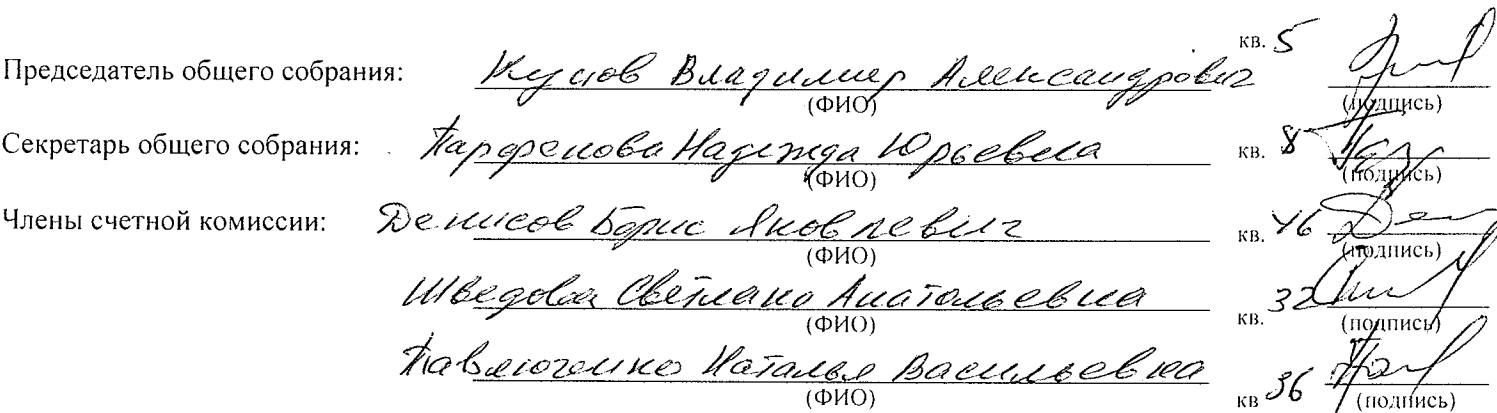 кв. 5
Председатель общего собрания: Кусков Владимир Александрович
(ФИО) (подпись)
Секретарь общего собрания: Парфенова Надежда Юрьевна кв. 8
(ФИО) (подпись)
Члены счетной комиссии: Денисов Борис Яковлевич кв. 46 Ден
(ФИО) (подпись)
Шведова Светлана Анатольевна кв. 32
(ФИО) (подпись)
Павлюченко Наталья Васильевна кв 36
(ФИО) (подпись)